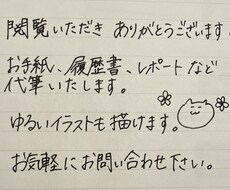 閲覧いただき ありがとうございます。
お手紙、履歴書、レポートなど
代筆いたします。
ゆるいイラストも描けます。
お気軽にお問い合わせ下さい。